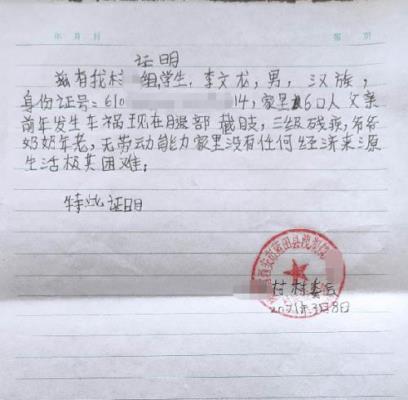 年 月 日
证明
兹有我村 组学生，李文龙，男，汉族，
身份证号：610 14，家里6口人父亲
前年发生车祸现在腿部截肢，三级残疾，爷爷
奶奶年老，无劳动能力家里没有任何经济来源
生活极其困难；
特此证明
村村委会
2021年3月8日